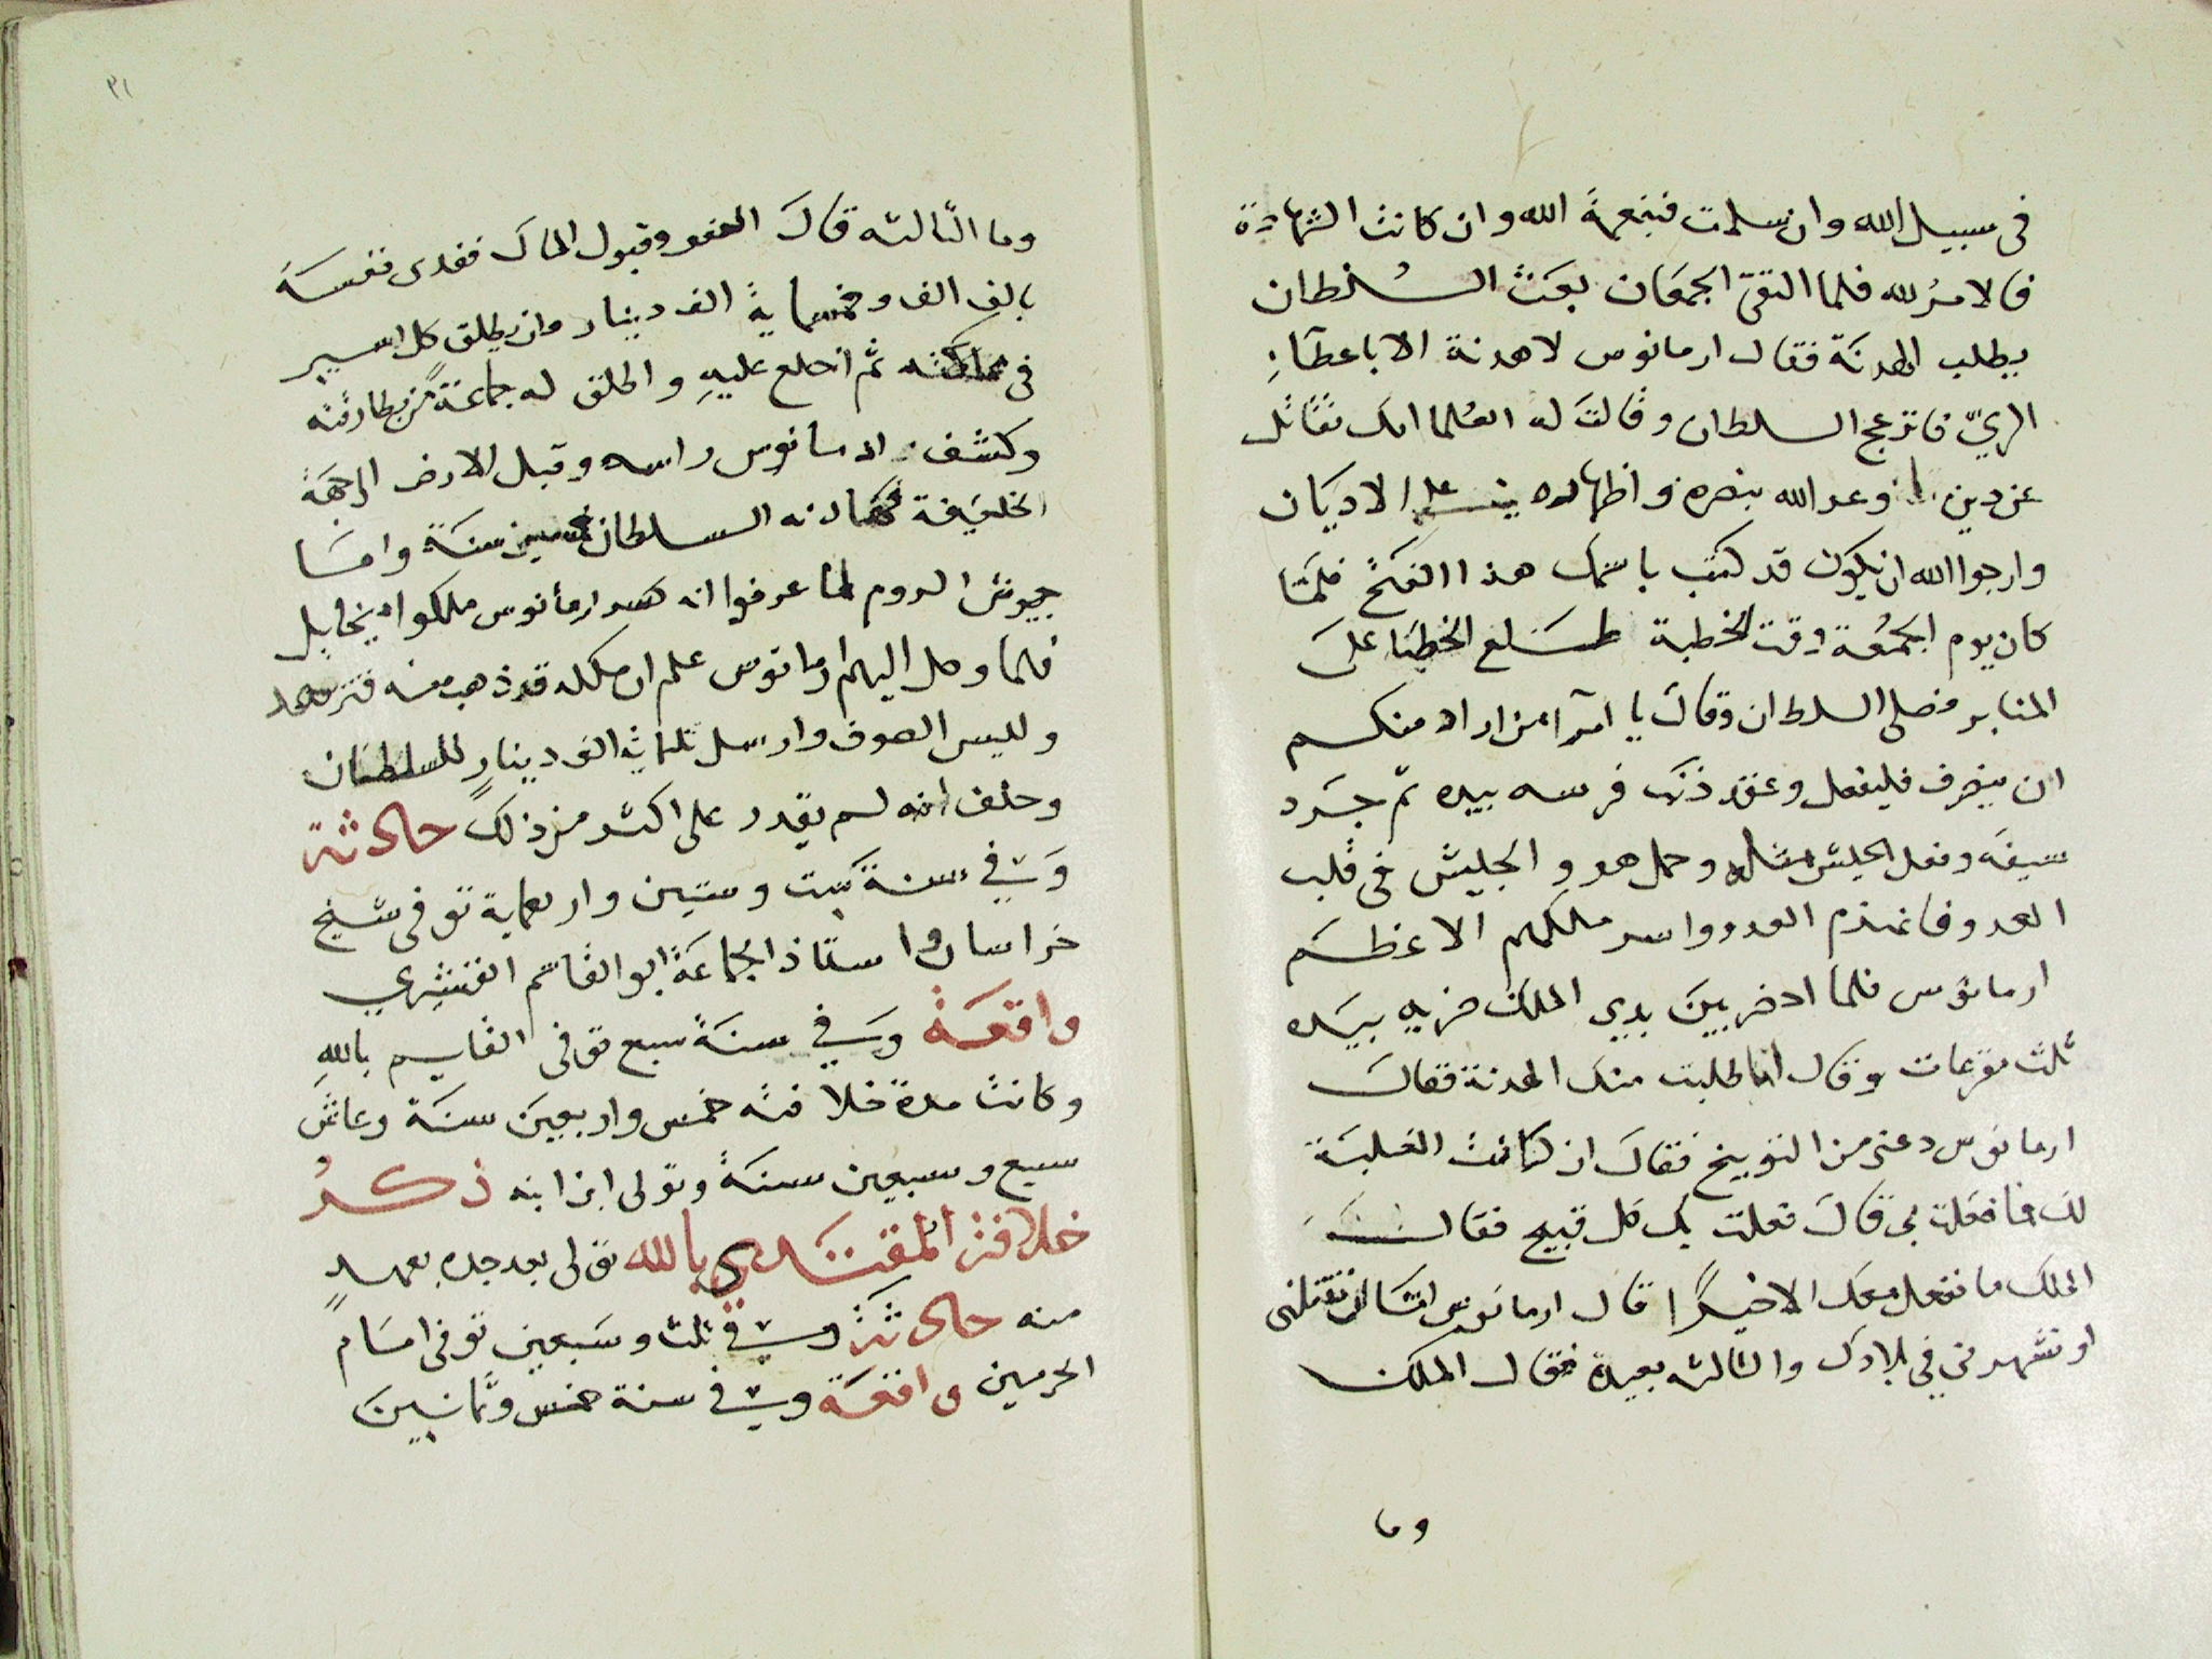 فى سبيل الله وان سلمت فبنعمة الله وان كانت الشهادة
فالامرُ لله فلما التقى الجمعان بعث السُلطان
يطلب الهدنة فقال ارمانوس لا هدنة الا باعطآءِ
الريّ فانزعج السلطان وقالت له العُلما انك تقاتل
عن دين وعد الله بنصره واظهاره على الاديان
وارجوا الله ان يكون قد كتب باسمك هذا الفتح فلمّا
كان يوم الجمُعة وقت الخطبة طلع الخطبا على
المنابر فصلى السلطان وقال يا امرآ من اراد منكم
ان ينصرف فليفعل وعقد ذنب فرسه بيده ثم جرد
سيفه وفعل الجيش مثله وحمل هو والجيش فى قلب
العدو فانهزم العدو واسر ملكهم الاعظم
ارمانوس فلما احضر بين يدى الملك ضربه بيده
ثلث مقرعات وقال اما طلبت منك الهدنة فقال
ارمانوس دعنى من التوبيخ فقال ان كانت الغلبة
لك فما فعلت بى قال فعلت بك كل قبيح فقال
الملك ما نفعل معك الا خيرًا قال ارمانوس اما ان تقتلنى
او تشهرنى فى بلادك والثالثه بعيدة فقال الملك
وما
٣١
وما الثالثه قال العفو وقبول المال ففدى نفسه
بالف الف وخمسماية الف دينار وان يطلق كل اسير
فى مملكته ثم اخلع عليهِ واطلق له جماعة من بطارقته
وكشف ارمانوس راسه وقبل الارض الى جهة
الخليفة فهادنه السلطان خمسين سنة واما
جيوش الروم لما عرفوا انه اسر ارمانوس ملكوا ميخاييل
فلما وصل اليهم ارمانوس علم ان ملكه قد ذهب منه فتزهد
ولبس الصوف وارسل ثلثماية الف دينارٍ للسلطان
وحلف انه لم يقدر على اكثر من ذلك حادثة
وفي سنة ست وستين واربعماية توفى شيخ
خراسان واستاذ الجماعة ابو القاسم القشيري
واقعة وفي سنة سبع توفى القايم باللهِ
وكانت مدة خلافته خمس واربعين سنة وعاش
سبع وسبعين سنة وتولى ابن ابنه ذكرُ
خلافة المقتدى بالله تولى بعد جده بعهدٍ
منه حادثة وفي ثلث وسبعين توفى امام
الحرمين واقعة وفي سنة خمس وثمانين